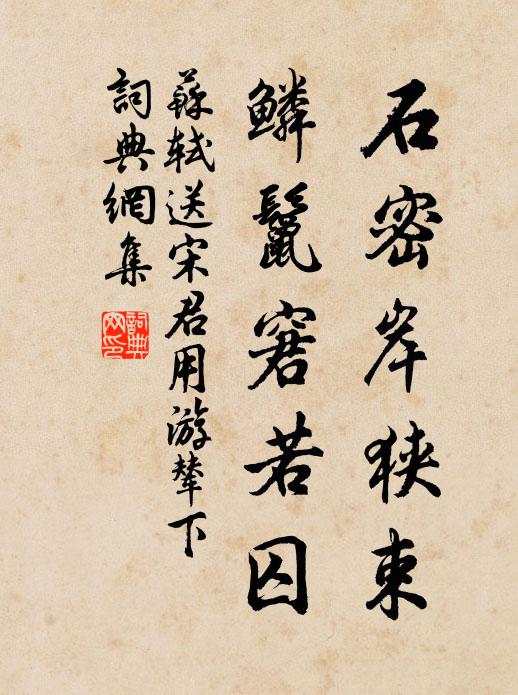 石密岸狹束
鱗鬣窘若囚
蘇軾送宋君用游輦下
詞典網集
詞典網印